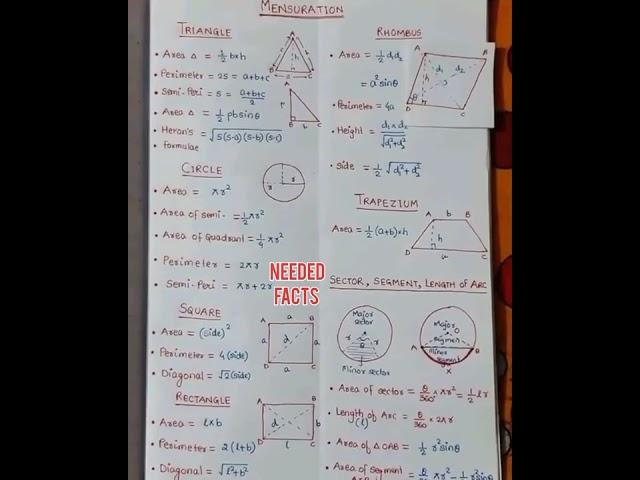 MENSURATION
TRIANGLE
• Area Δ = 1/2 b×h
• Perimeter = 2S = a+b+c
• Semi-Peri = S = (a+b+c)/2
• Area Δ = 1/2 pbsinθ
• Heron's = √S(S-a)(S-b)(S-c)
• formulae
A
h
B
C
a
A
P
B
b
C
CIRCLE
• Area = πr²
• Area of semi- = 1/2 πr²
• Area of Quadrant = 1/4 πr²
• Perimeter = 2πr
• Semi-Peri = πr + 2r
r
r
SQUARE
• Area = (side)²
• Perimeter = 4(side)
• Diagonal = √2(side)
A
a
B
a
d
a
D
a
C
RECTANGLE
• Area = l×b
• Perimeter = 2(l+b)
• Diagonal = √l²+b²
A
B
d
b
D
l
C
NEEDED
FACTS
RHOMBUS
• Area = 1/2 d₁d₂
= a²sinθ
• Perimeter = 4a
• Height = d₁×d₂/√d₁²+d₂²
• side = 1/2 √d₁²+d₂²
A
B
d₁
d₂
h
θ
D
C
TRAPEZIUM
Area = 1/2 (a+b)×h
A
b
B
h
D
C
SECTOR, SEGMENT, LENGTH OF ARC
Major
sector
θ
Minor sector
Major
O
segment
A
B
Minor
segment
X
• Area of sector = θ/360° × πr² = 1/2 lr
• Length of Arc = θ/360° × 2πr
(l)
• Area of Δ OAB = 1/2 r²sinθ
• Area of segment
πr² - 1/2 r²sinθ